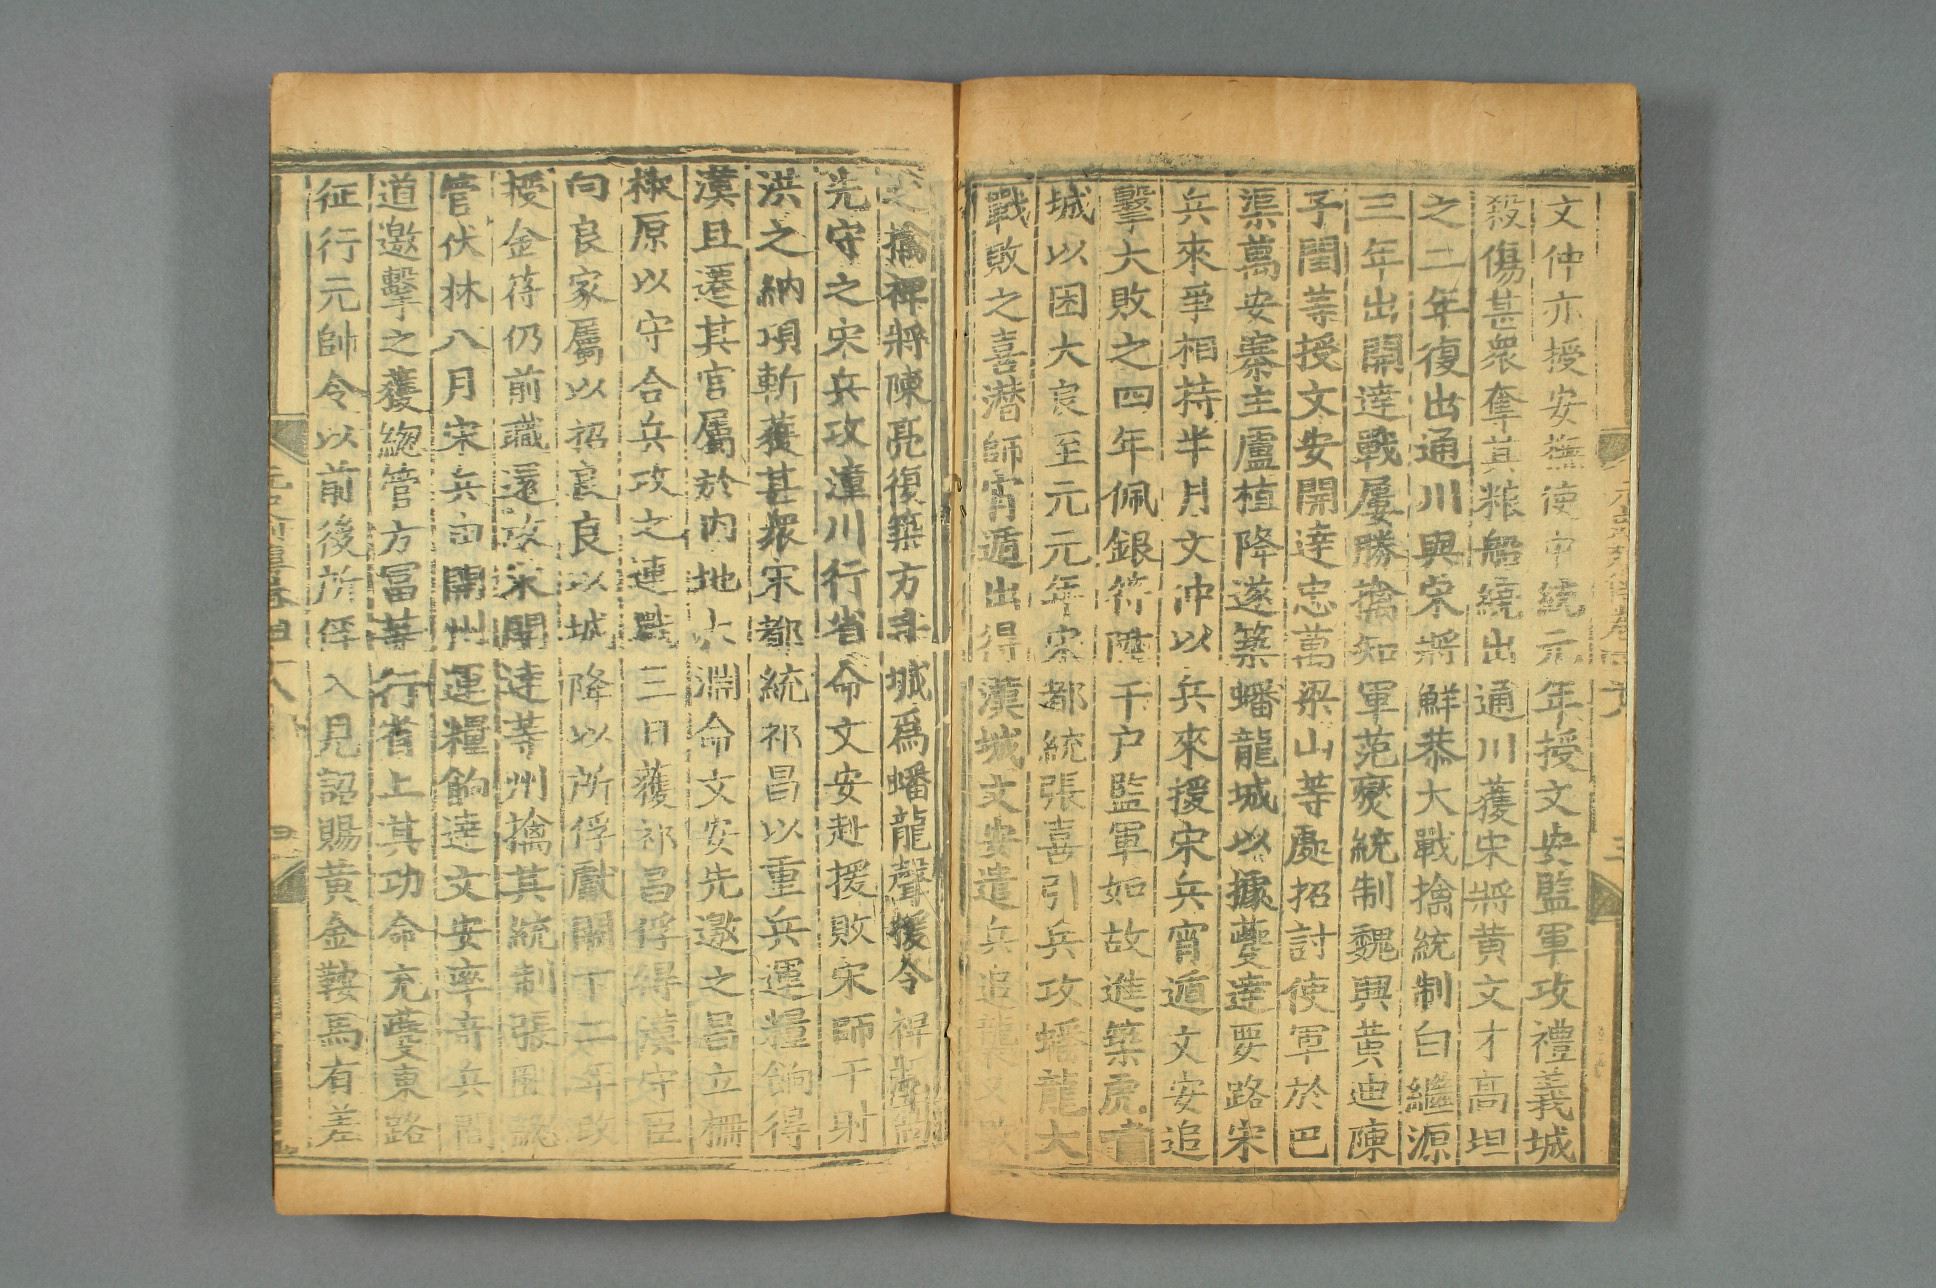 文仲亦授安撫使中統元年授文安監軍攻禮義城
殺傷甚衆奪其粮船繞出通川獲宋將黄文才高坦
之二年復出通川與宋將鮮恭大戰擒統制白繼源
三年出開達戰屡勝擒知軍范燮統制魏興黄迪陳
子閏等授文安開達忠萬梁山等處招討使軍於巴
渠萬安寨主盧植降遂築蟠龍城以據夔達要路宋
兵來爭相持半月文仲以兵來援宋兵宵遁文安追
擊大敗之四年佩銀符陞千户監軍如故進築虎嘯
城以困大良至元元年宋都統張喜引兵攻蟠龍大
戰敗之喜潜師宵遁出得漢城文安遣兵追襲又敗
之擒裨將陳亮復築方斗城爲蟠龍聲援令裨將高
先守之宋兵攻潼川行省命文安赴援敗宋師于射
洪之納項斬獲甚衆宋都統祁昌以重兵運糧餉得
漢且遷其官屬於内地大淵命文安先邀之昌立柵
椒原以守合兵攻之連戰三日獲祁昌俘得漢守臣
向良家屬以招良良以城降以所俘獻闕下二年改
授金符仍前職還攻宋開達等州擒其統制張剛總
管伏林八月宋兵由開州運糧餉達文安率奇兵間
道邀擊之獲總管方冨等行省上其功命充夔東路
征行元帥令以前後所俘入見詔賜黄金鞍馬有差